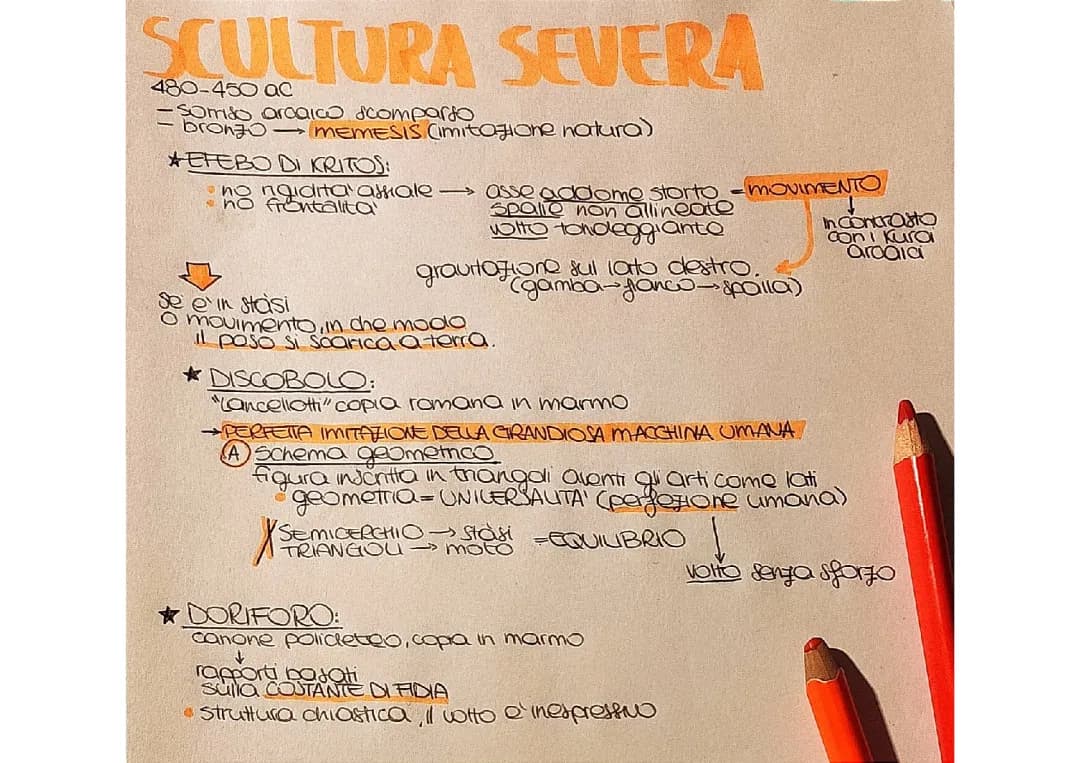 SCULTURA SEVERA
480-450 aC
- sorriso arcaico scomparso
- bronzo → MEMESIS (imitazione natura)
★ EFEBO DI KRITOS:
• no rigidità assiale → asse addome storto = MOVIMENTO
• no frontalità spalle non allineate
volto tondeggiante
in contrasto
con i Kuroi
arcaici
gravitazione sul lato destro.
(gamba→fianco→spalla)
se è in stàsi
o movimento, in che modo
il peso si scarica a terra.
★ DISCOBOLO:
"Lancellotti" copia romana in marmo
→ PERFETTA IMITAZIONE DELLA GRANDIOSA MACCHINA UMANA
A schema geometrico
figura inscritta in triangoli aventi gli arti come lati
• geometria = UNIVERSALITA' (perfezione umana)
SEMICERCHIO → stàsi = EQUILIBRIO
TRIANGOLI → moto
volto senza sforzo
★ DORIFORO:
canone policleteo, copia in marmo
↓
rapporti basati
sulla COSTANTE DI FIDIA
• struttura chiastica, il volto è inespressivo